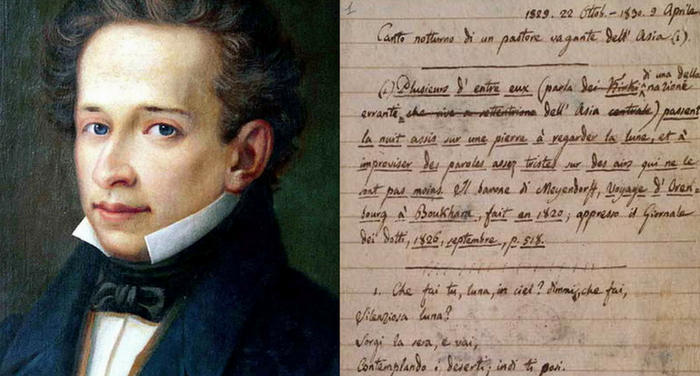 1
1829. 22 Ottob. - 1830. 9 Aprile.
Canto notturno di un pastore vagante dell'Asia (1).
(1) Plusieurs d'entre eux (parla dei di una delle nazione
errante che vive a settentrione dell'Asia centrale) passent
la nuit assis sur une pierre à regarder la lune, et à
improviser des paroles assez tristes sur des airs qui ne le
sont pas moins. Il barone di Meyendorff, Voyage d'Oren
bourg à Boukhara, fait en 1820; appresso il Giornale
dei dotti, 1826, septembre, p. 518.
1. Che fai tu, luna, in ciel? dimmi, che fai,
Silenziosa luna?
Sorgi la sera, e vai,
Contemplando i deserti; indi ti posi.